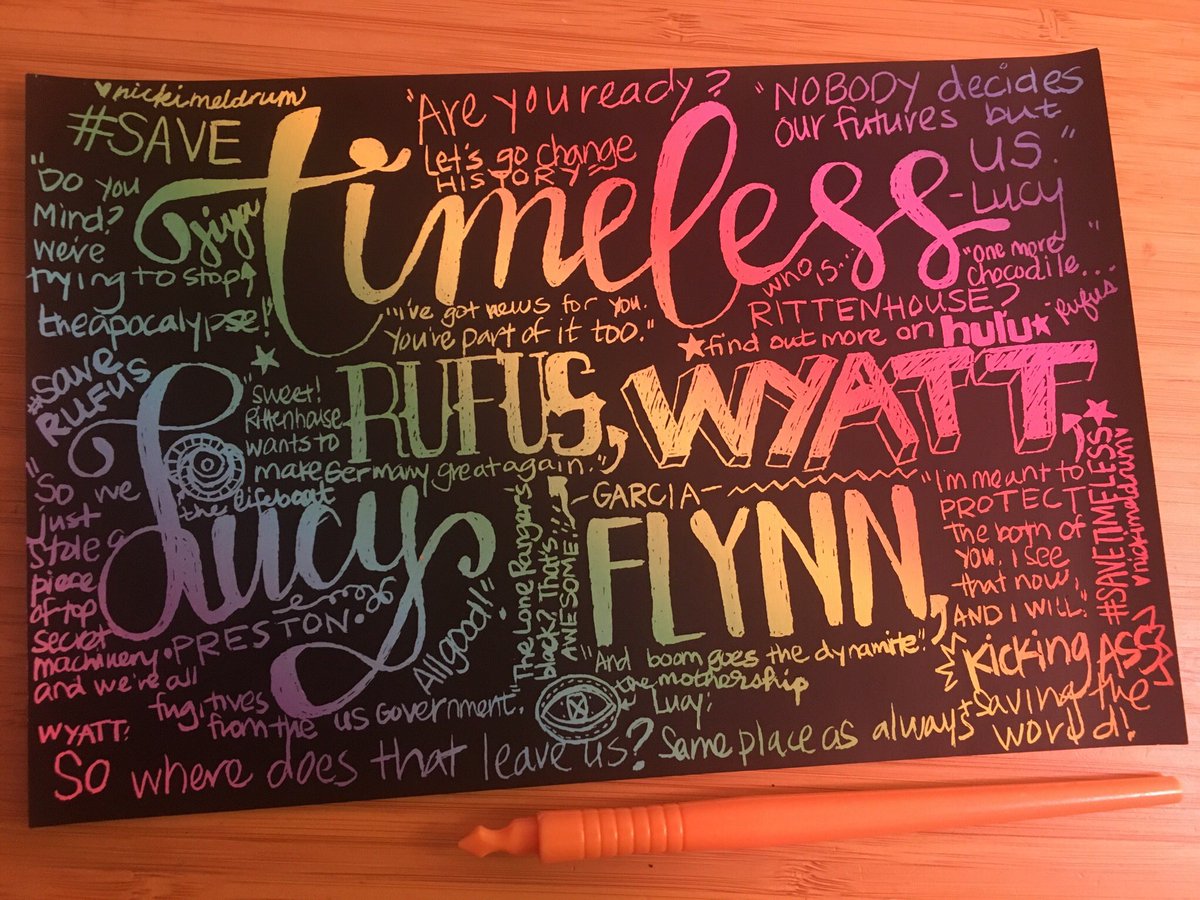 ♥nickimeldrum
#SAVE
timeless
"Are you ready?
Let's go change
HISTORY"
"NOBODY decides
our futures but
us."
-Lucy
"Do you
Mind?
we're
trying to stop
the apocalypse!"
jiya
"I've got news for you.
You're part of it too."
who is...
RITTENHOUSE?
★find out more on hulu★
"one more
chocodile..."
rufus
#SAVE
RUFUS
"sweet!
Rittenhouse
wants to
make Germany great again."
RUFUS,
WYATT,
Lucy
PRESTON.
the lifeboat
"So we
just
stole a
piece
of top
secret
machinery.
and we're all
fugitives
from the US Government."
All good!
"The Lone Ranger's
black? That's...
AWESOME!"
-GARCIA-
FLYNN,
"I'm meant to
PROTECT
The both of
you. I see
that now,
AND I WILL."
#SAVETIMELESS★
♥nickimeldrum♥
"And boom goes the dynamite."
the mothership
kicking ASS
WYATT:
So where does that leave us?
Lucy:
Same place as always
saving the
world!